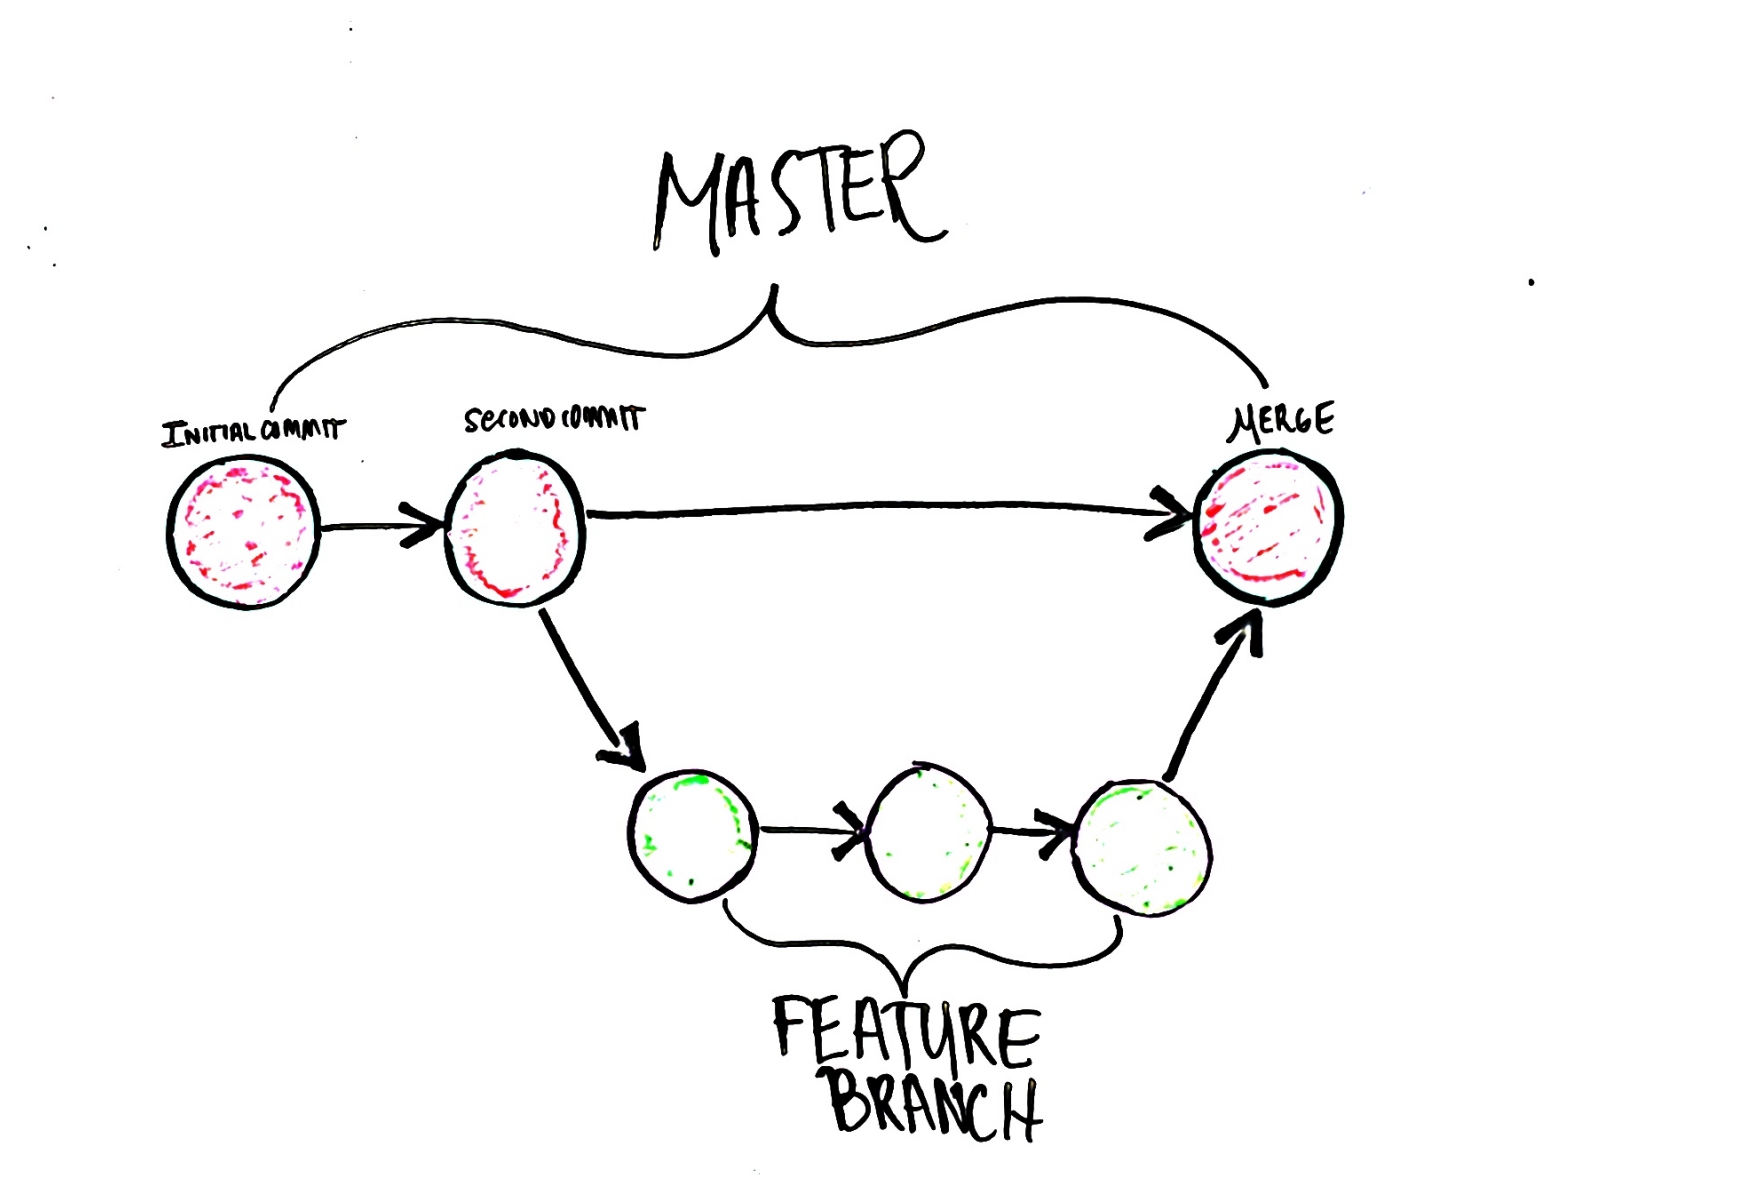 MASTER
INITIAL COMMIT
SECOND COMMIT
MERGE
FEATURE
BRANCH